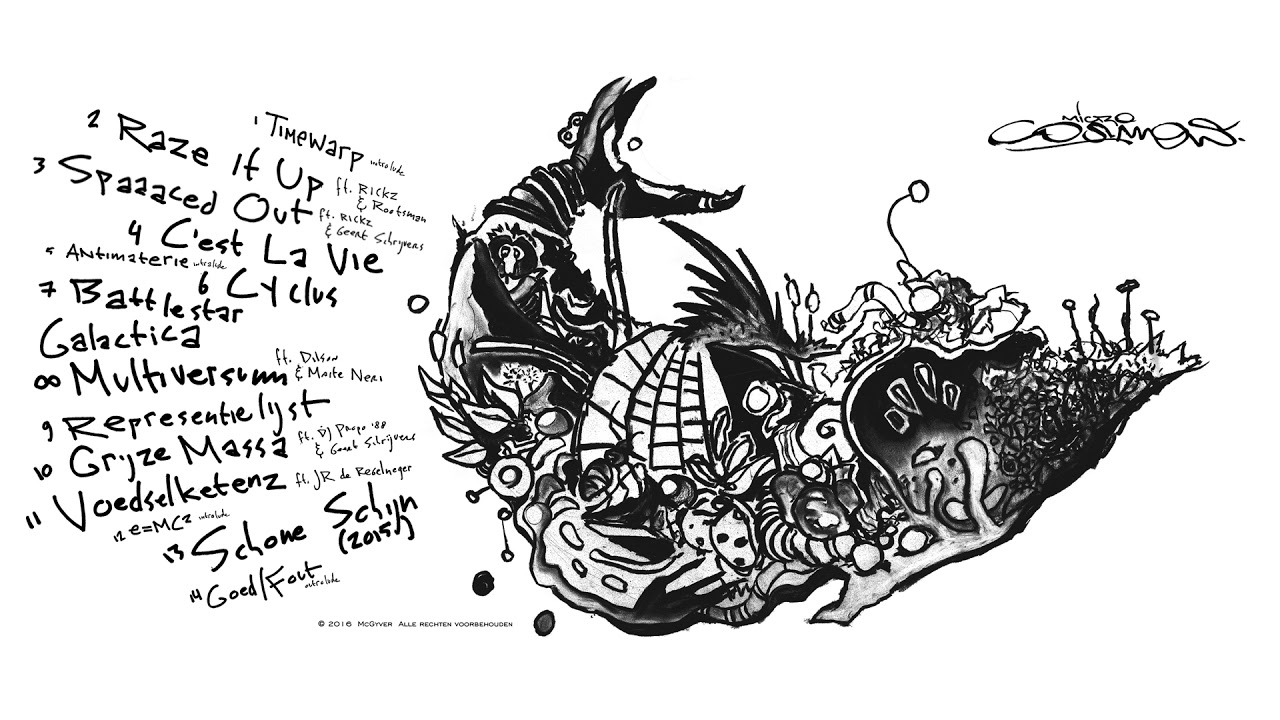 1 Timewarp introlude
2 Raze It Up ft. Rickz & Rootsman
3 Spaaaced Out ft. Rickz & Geert Schrijvers
4 C'est La Vie
5 Antimaterie introlude
6 Cyclus
7 Battlestar
Galactica
∞ Multiversum ft. Dilson & Maite Neri
9 Representielijst
10 Grijze Massa ft. DJ Propo '88 & Geert Schrijvers
11 Voedselketenz ft. JR de Regelneger
12 e=MC² introlude
13 Schone Schijn (2015!)
14 Goed/Fout outrolude
© 2016 McGyver Alle rechten voorbehouden
micro
cosmos.